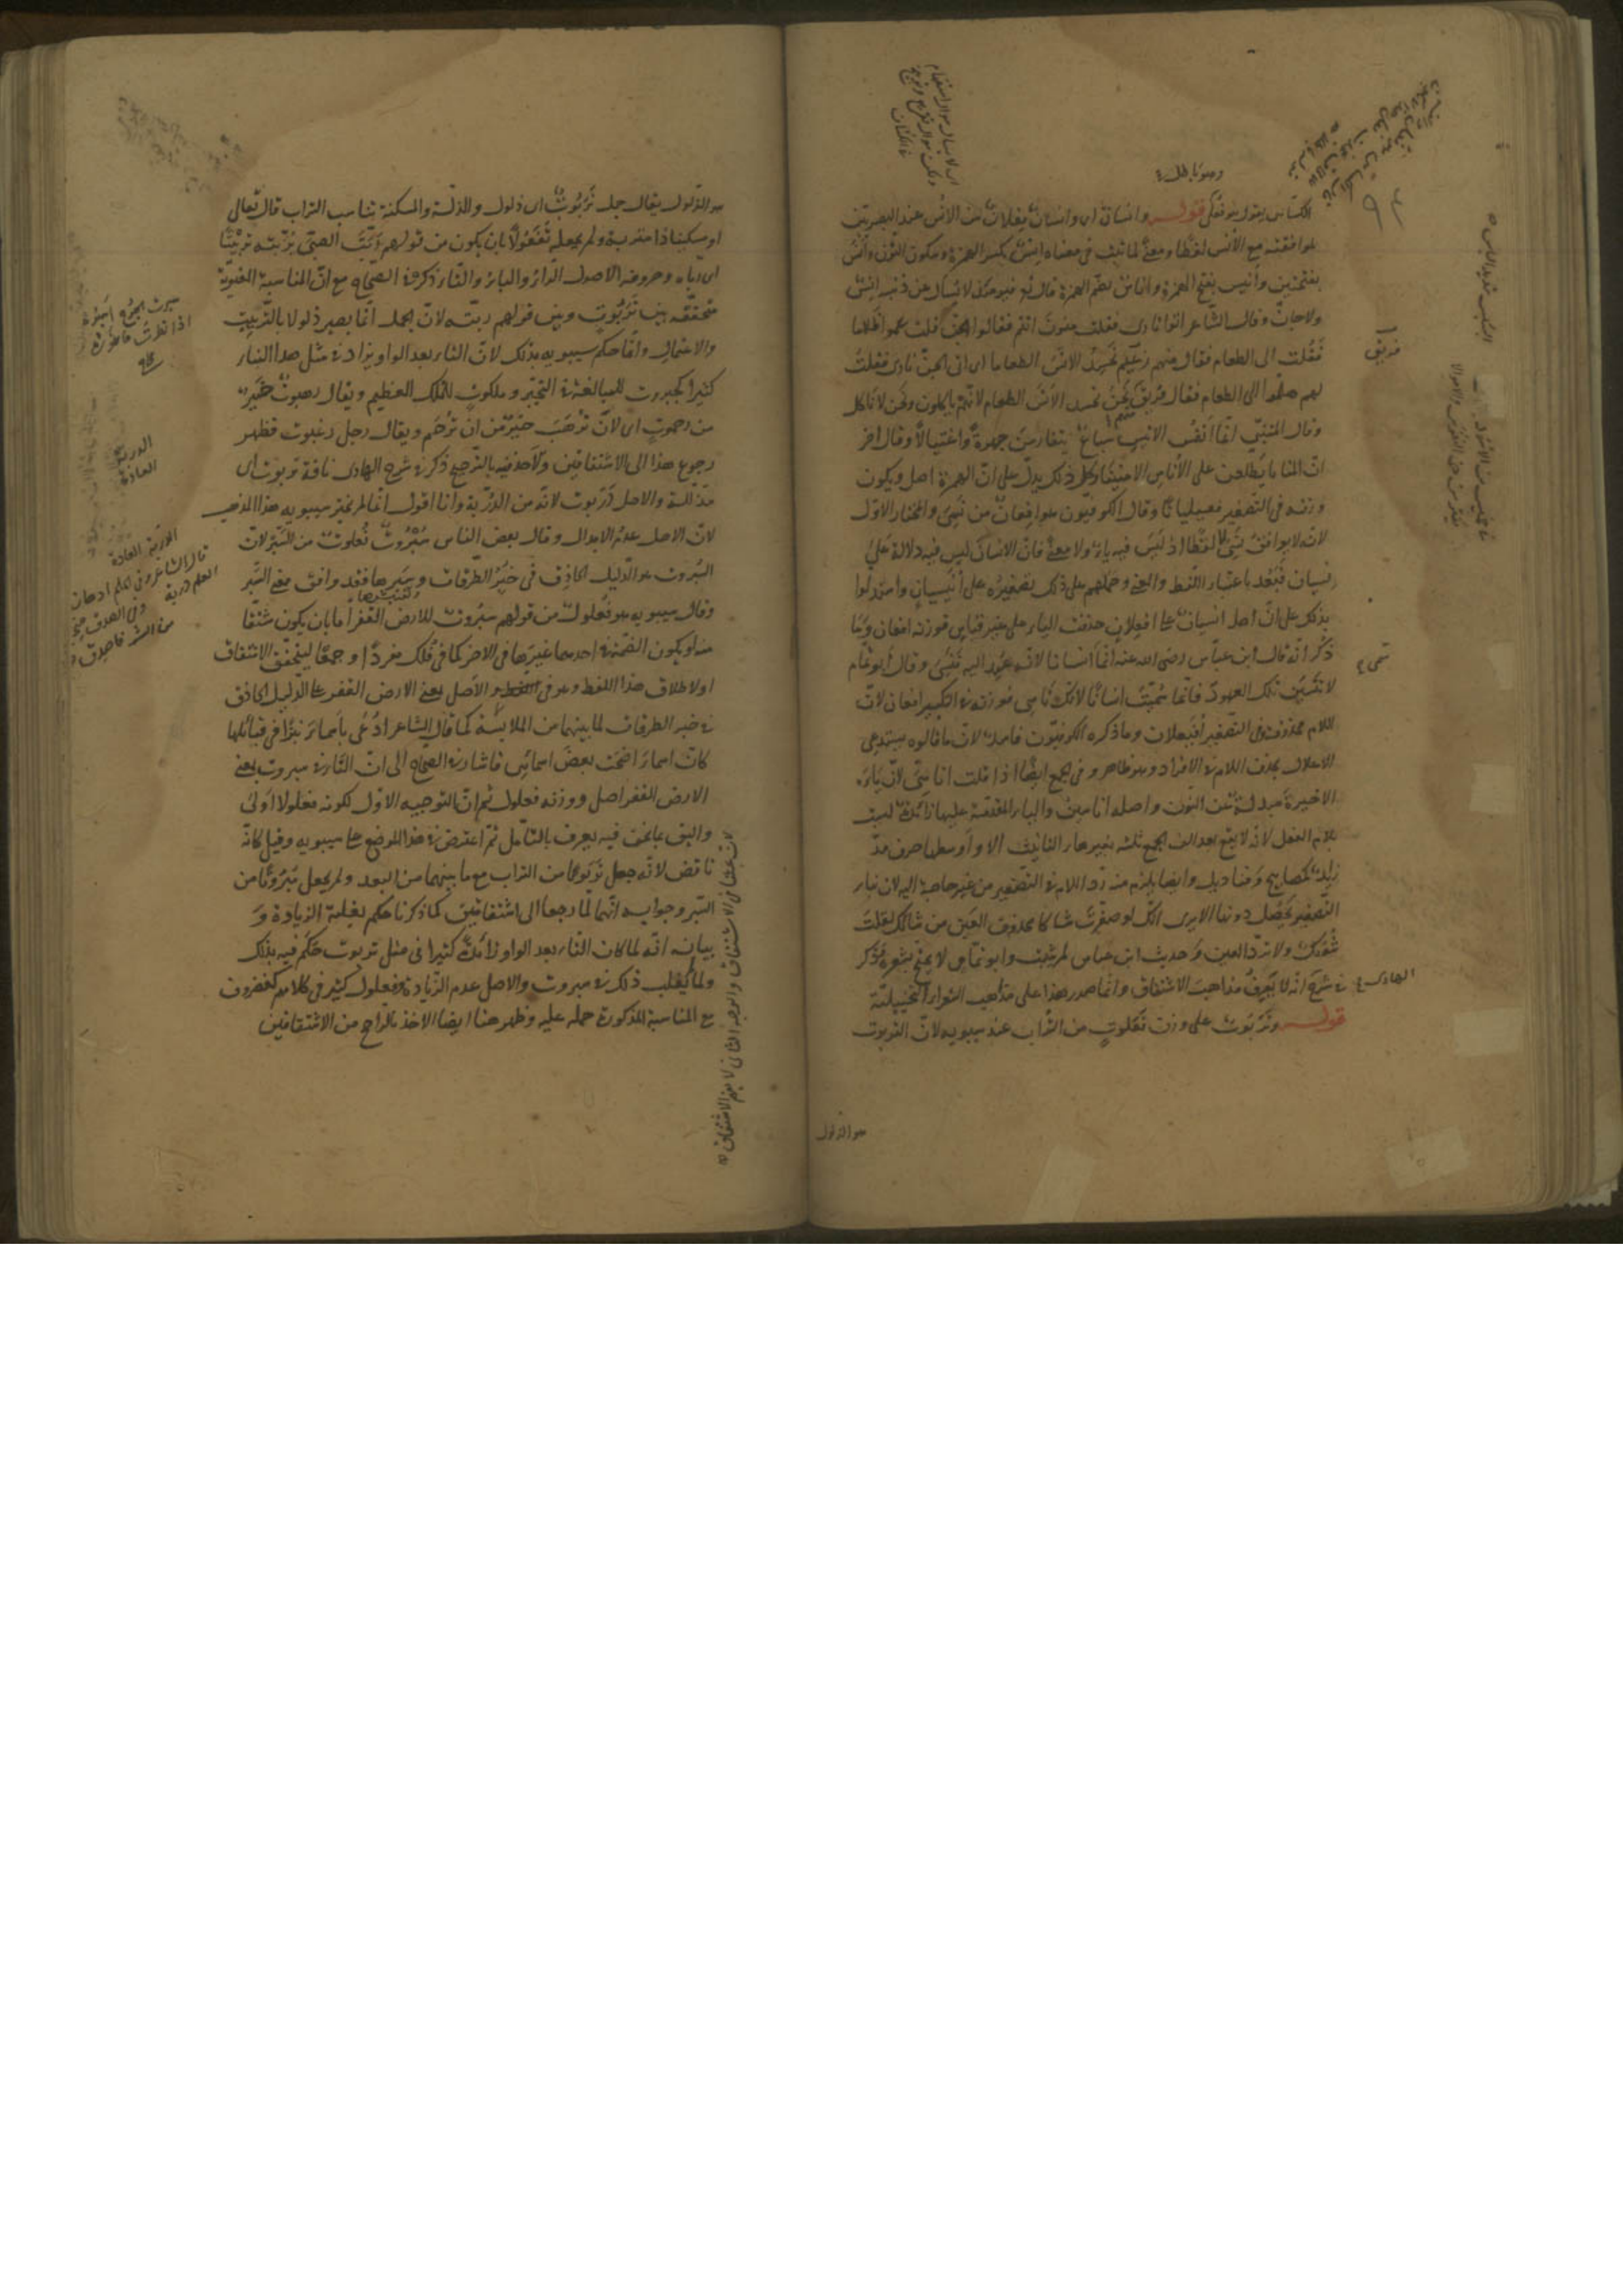 وهو باطل
الكناس يقول هو فعلى قوله وانسان اى وانسان فعلان من الانس عند البصريين
لموافقته مع الانس لفظا ومعنى لما ثبت فى معناه انس بكسر الهمزة وسكون النون وانس
بفتحتين وانيس بفتح الهمزة واناس بضم الهمزة قال تع فيومئذ لا يسأل عن ذنبه انس
ولا جان وقال الشاعر اتوا نارى فقلت منون انتم فقالوا الجن قلت عموا ظلاما
فقلت الى الطعام فقال منهم زعيم نحسد الانس الطعاما اى اتى الجن نارى فقلت
لهم هلموا الى الطعام فقال فريق نحن نحسد الانس الطعام لانهم ياكلون ونحن لا ناكل
وقال المتنبى انما انفس الانيس سباع يتفارسن جهرة واغتيالا وقال اخر
ان المنايا يطلعن على الاناس الامنينا وكل ذلك يدل على ان الهمزة اصل ويكون
وزنه فى التصغير فعيليانا وقال الكوفيون هو افعان من نسى والمختار الاول
لانه لا يوافق نسى لا لفظا اذ ليس فيه ياء ولا معنى فان الانسان ليس فيه دلالة على
نسيان فبعد باعتبار اللفظ والمعنى وحملهم على ذلك تصغيره على انيسيان واستدلوا
بذلك على ان اصل انسيان على افعلان حذفت الياء على غير قياس فوزنه افعان وبما
ذكر انه قال ابن عباس رضى الله عنه انما انسانا لانه عهد اليه فنسى وقال ابو تمام
سمى
لا تنسين تلك العهود فانما سميت انسانا لانك ناسى فوزنه فى التكبير افعان لان
اللام محذوفة وفى التصغير افيعلان وما ذكره الكوفيون فاسد لان ما قالوه يستدعى
الاعلال بحذف اللام فى الافراد وهو ظاهر وفى الجمع ايضا اذا قلت اناسى لان ياءه
الاخيرة مبدلة عن النون واصله اناسين والياء المتقدمة عليها زائدة ليست
بلام الفعل لانه لا يقع بعد الف الجمع ثلثة بغير هاء التانيث الا واوسطها حرف مد
زائد كمصابيح وقناديل وايضا يلزم منه رد اللام فى التصغير من غير حاجة اليه لان بناء
التصغير يحصل دونها الا يرى انك لو صغرت شاكا محذوف العين من شائك لقلت
شويك ولا ترد العين وحديث ابن عباس لم يثبت وابو تمام لا يحتج بشعره ذكر
الهادى فى شرحه انه لا يعرف مذاهب الاشتقاق وانما صدر هذا على مذاهب الشعراء التخييلية
قوله وتربوت على وزن فعلوت من التراب عند سيبويه لان التربوت
هو الذلول
هو الذلول يقال جمل تربوت اى ذلول والذلة والمسكنة يناسب التراب قال تعالى
او مسكينا ذا متربة ولم يجعله تفعولا بان يكون من قولهم ربت الصبى يربته تربيتا
اى رباه وحروفه الاصول الراء والباء والتاء ذكره فى الصحاح مع ان المناسبة المعنوية
متحققة بين تربوت وبين قولهم ربته لان الجمل انما يصير ذلولا بالتربيت
والاعتمال وانما حكم سيبويه بذلك لان التاء بعد الواو يزاد فى مثل هذا البناء
كثيرا كجبروت للمبالغة فى التجبر وملكوت للملك العظيم ويقال رهبوت خير
من رحموت اى لان ترهب خير من ان ترحم ويقال رجل رغبوت فظهر
رجوع هذا الى الاشتقاقين والاخذ فيه بالترجيح ذكر فى شرح الهادى ناقة تربوت اى
مذللة والاصل دربوت لانه من الدربة وانا اقول انما لم يختر سيبويه هذا المذهب
لان الاصل عدم الابدال وقال بعض الناس سبروت فعلوت من السبر لان
السبروت هو الدليل الحاذق فى خبر الطرقات وسبرها فقد وافق معنى السبر
وقال سيبويه هو فعلول من قولهم سبروت للارض القفر اما بان يكون مشتقا
منه او يكون الضمة فى احدهما غيرها فى الاخر كما فى فلك مفردا وجمعا ليتحقق الاشتقاق
او لاطلاق هذا اللفظ وهو فى الاصل بمعنى الارض القفر على الدليل الحاذق
فى خبر الطرقات لما بينهما من الملابسة كما قال الشاعر ادعى باسماء نبزا فى قبائلها
كان اسماء اضحت بعض اسمائى فاشار فى الصحاح الى ان التاء فى سبروت بمعنى
الارض القفر اصل ووزنه فعلول ثم ان التوجيه الاول لكونه فعلولا اولى
واليق بما نحن فيه يعرف بالتامل ثم اعترض فى هذا الموضع على سيبويه وقيل كانه
ناقض لانه جعل تربوتا من التراب مع ما بينهما من البعد ولم يجعل سبروتا من
السبر وجوابه انهما لما رجعا الى اشتقاقين كما ذكرنا حكم بغلبة الزيادة و
بيانه انه لما كان التاء بعد الواو زائدة كثيرا فى مثل تربوت حكم فيه بذلك
ولما لم يغلب ذلك فى سبروت والاصل عدم الزيادة وفعلول كثير فى كلامهم كغضروف
مع المناسبة المذكورة حمله عليه وظهر هنا ايضا الاخذ بالراجح من الاشتقاقين
الدربة
العادة
الدربة العادة